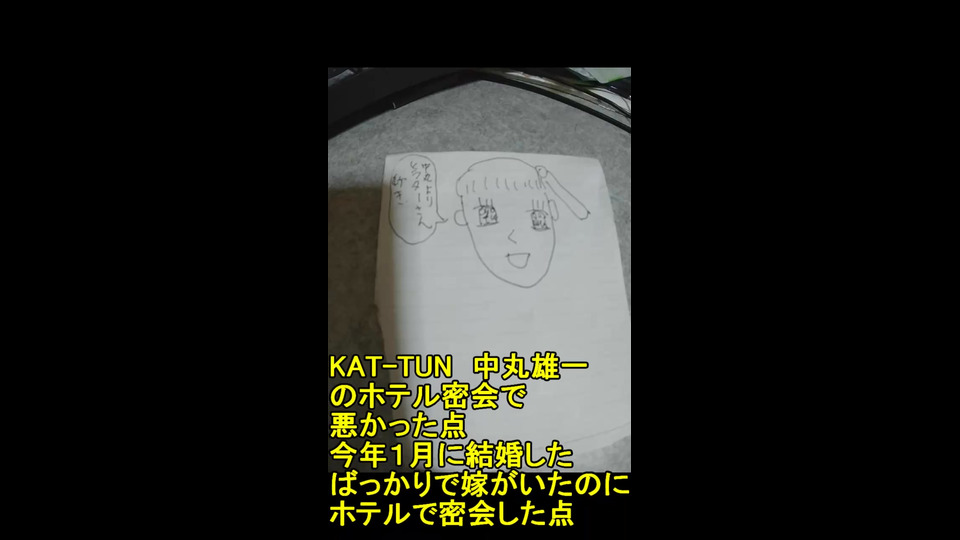 中丸より
ヒッターさん
好き
KAT-TUN 中丸雄一
のホテル密会で
悪かった点
今年１月に結婚した
ばっかりで嫁がいたのに
ホテルで密会した点